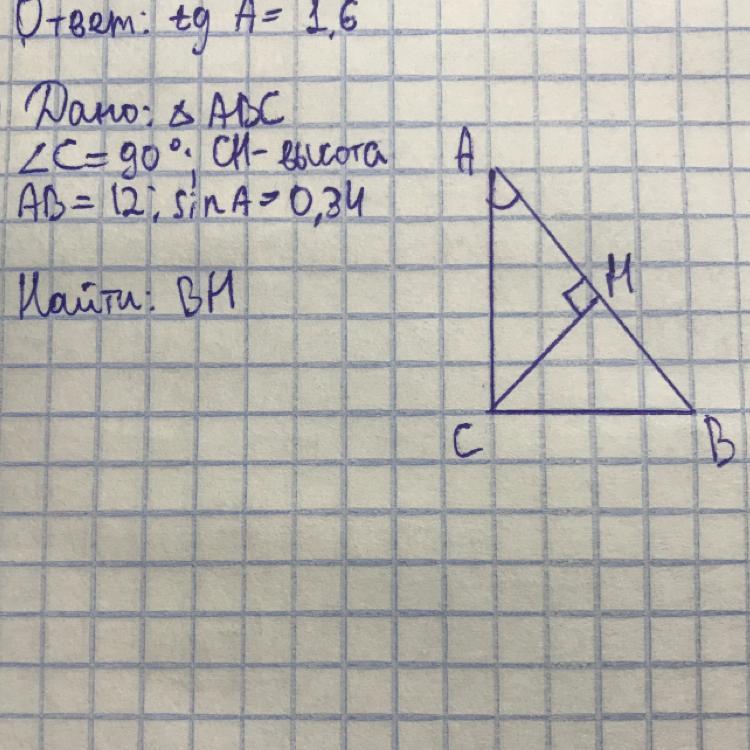 Ответ: tg A = 1,6
Дано: △ ABC
∠C = 90°; CH - высота
AB = 12; sin A = 0,34
Найти: BH
A
H
C
B